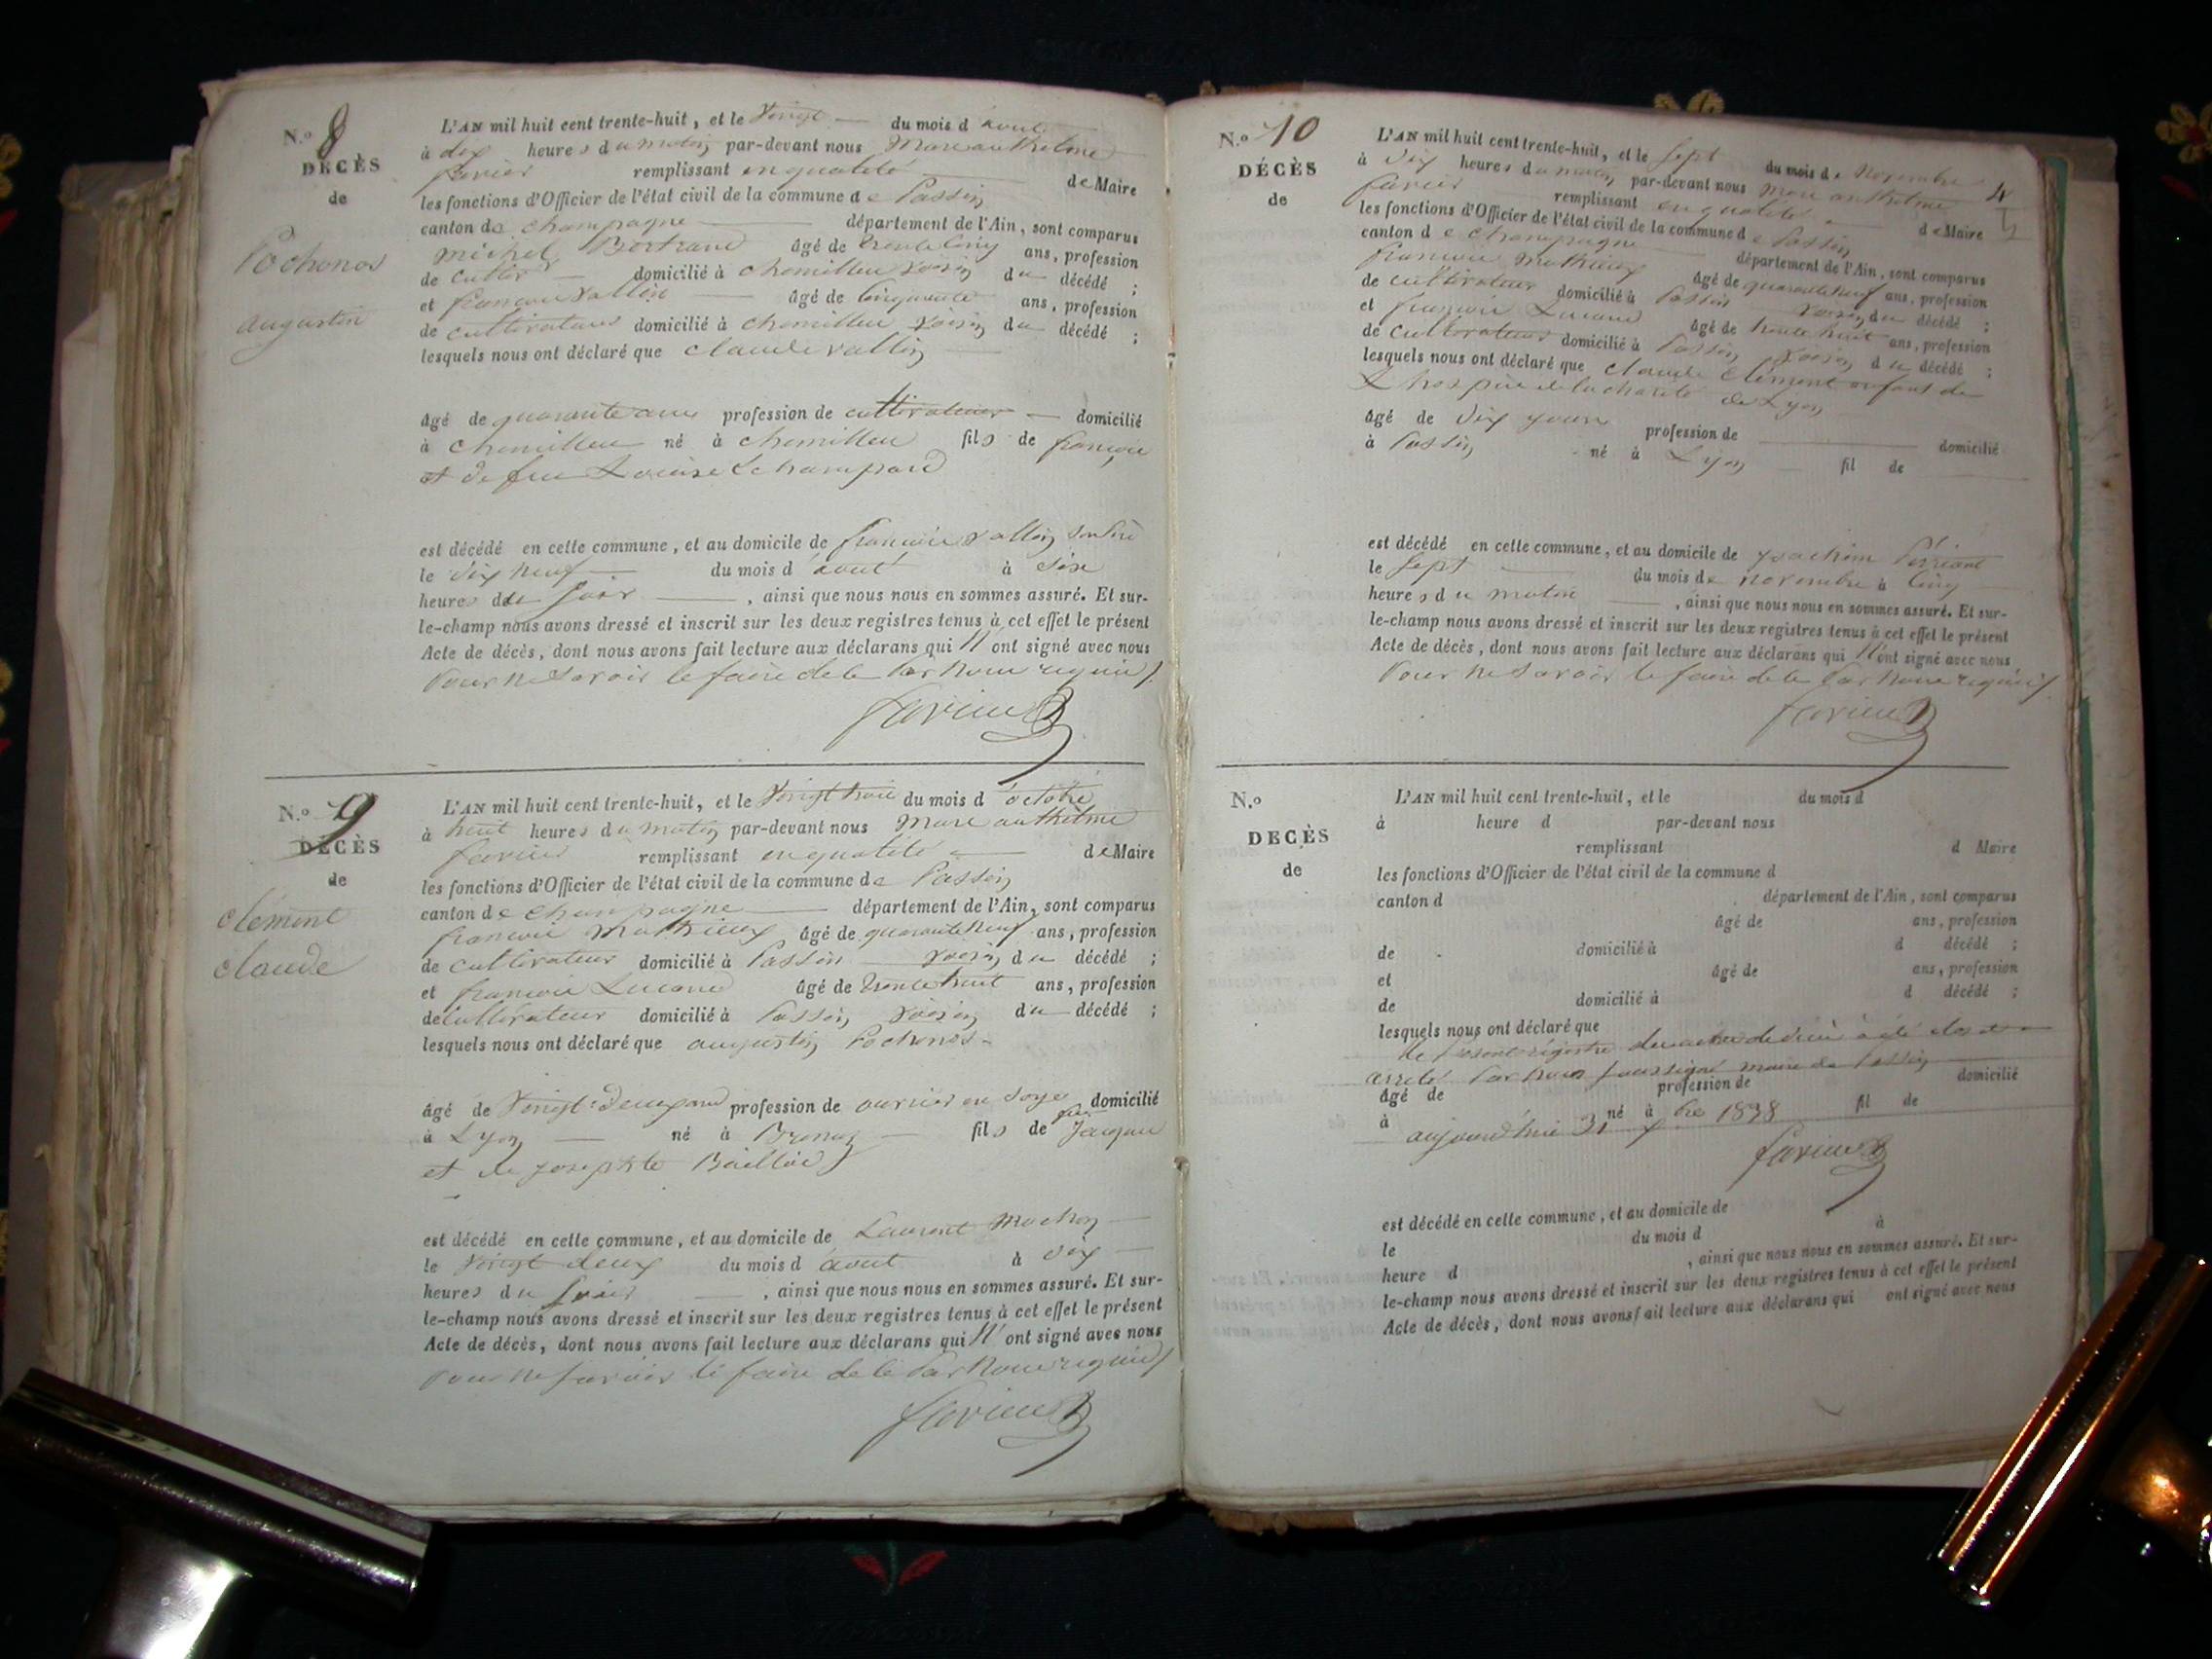 N.o 8
DÉCÈS
de
Pochonos
augustin
L'AN mil huit cent trente-huit, et le Vingt du mois d'aout
à dix heures du matin par-devant nous Marc anthelme
favier remplissant en qualité de Maire
les fonctions d'Officier de l'état civil de la commune de Passin
canton de champagne département de l'Ain, sont comparus
michel Bertrand âgé de trente cinq ans, profession
de cultir domicilié à chemilleu voisin du décédé ;
et françois Vallin âgé de cinquante ans, profession
de cultivateur domicilié à chemilleu voisin du décédé ;
lesquels nous ont déclaré que claude vallin
âgé de quarante ans profession de cultivateur domicilié
à chemilleu né à chemilleu fils de françois
et de feu Louise Lchampard
est décédé en cette commune, et au domicile de françois vallin son père
le dix neuf du mois d'aout à six
heures du soir , ainsi que nous nous en sommes assuré. Et sur-
le-champ nous avons dressé et inscrit sur les deux registres tenus à cet effet le présent
Acte de décès, dont nous avons fait lecture aux déclarans qui N'ont signé avec nous
Pour ne savoir le faire de ce Par nous requis
favier
N.o 9
DÉCÈS
de
clément
claude
L'AN mil huit cent trente-huit, et le Vingt trois du mois d'octobre
à huit heures du matin par-devant nous Marc anthelme
favier remplissant en qualité de Maire
les fonctions d'Officier de l'état civil de la commune de Passin
canton de champagne département de l'Ain, sont comparus
françois Mathieux âgé de quarante neuf ans, profession
de cultivateur domicilié à Passin voisin du décédé ;
et françois Lucand âgé de trente huit ans, profession
de cultivateur domicilié à Passin voisin du décédé ;
lesquels nous ont déclaré que augustin Pochonos
âgé de Vingt deux ans profession de ouvrier en soye domicilié
à Lyon né à Brenaz fils de feu Jacques
et de josephte Baillod
est décédé en cette commune, et au domicile de Laurent Mochon
le Vingt deux du mois d'aout à dix
heures du soir , ainsi que nous nous en sommes assuré. Et sur-
le-champ nous avons dressé et inscrit sur les deux registres tenus à cet effet le présent
Acte de décès, dont nous avons fait lecture aux déclarans qui N'ont signé avec nous
Pour ne savoir le faire de ce Par nous requis
favier
N.o 10
DÉCÈS
de
L'AN mil huit cent trente-huit, et le sept du mois de Novembre
à dix heures du matin par-devant nous marc anthelme
favier remplissant en qualité de Maire
les fonctions d'Officier de l'état civil de la commune de Passin
canton de champagne département de l'Ain, sont comparus
françois Mathieux âgé de quarante neuf ans, profession
de cultivateur domicilié à Passin voisin du décédé ;
et françois Lucand âgé de trente huit ans, profession
de cultivateur domicilié à Passin voisin du décédé ;
lesquels nous ont déclaré que claude clément enfant de
L'hospice de la charité de Lyon
âgé de dix jours profession de domicilié
à Passin né à Lyon fil de
est décédé en cette commune, et au domicile de joachim
le sept du mois de novembre à cinq
heures du matin , ainsi que nous nous en sommes assuré. Et sur-
le-champ nous avons dressé et inscrit sur les deux registres tenus à cet effet le présent
Acte de décès, dont nous avons fait lecture aux déclarans qui N'ont signé avec nous
Pour ne savoir le faire de ce Par nous requis
favier
N.o
DÉCÈS
de
L'AN mil huit cent trente-huit, et le du mois d
à heure d par-devant nous
remplissant d Maire
les fonctions d'Officier de l'état civil de la commune d
canton d département de l'Ain, sont comparus
âgé de ans, profession
de domicilié à d décédé ;
et âgé de ans, profession
de domicilié à d décédé ;
lesquels nous ont déclaré que
le présent régistre des actes de décès à été clos et
arrêté Par nous soussigné maire de Passin
âgé de profession de domicilié
à né à fil de
aujourd'hui 31 xbre 1838
favier
est décédé en cette commune, et au domicile de
le du mois d à
heure d , ainsi que nous nous en sommes assuré. Et sur-
le-champ nous avons dressé et inscrit sur les deux registres tenus à cet effet le présent
Acte de décès, dont nous avons fait lecture aux déclarans qui ont signé avec nous